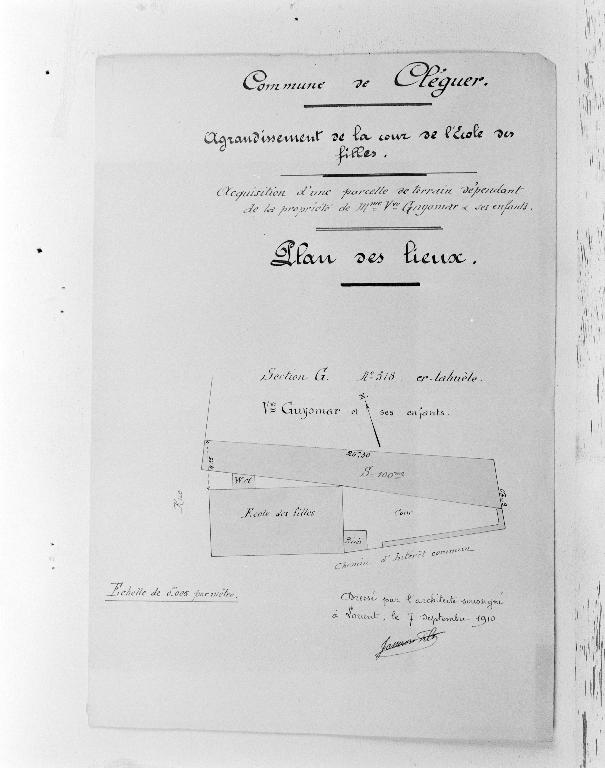 Commune de Cléguer.
Agrandissement de la cour de l'Ecole des
filles.
Acquisition d'une parcelle de terrain dépendant
de la propriété de Mme Vve Guyomar & ses enfants.
Plan des lieux.
Section G. No 518 er-lahuële.
Vve Guyomar et ses enfants.
N.
S= 100m2
W.C
Ecole des filles
Cour
Rue
Puits
Chemin d'Intérêt commun
Echelle de 0.005 par mètre.
Dressé par l'architecte soussigné
à Lorient, le 7 septembre 1910